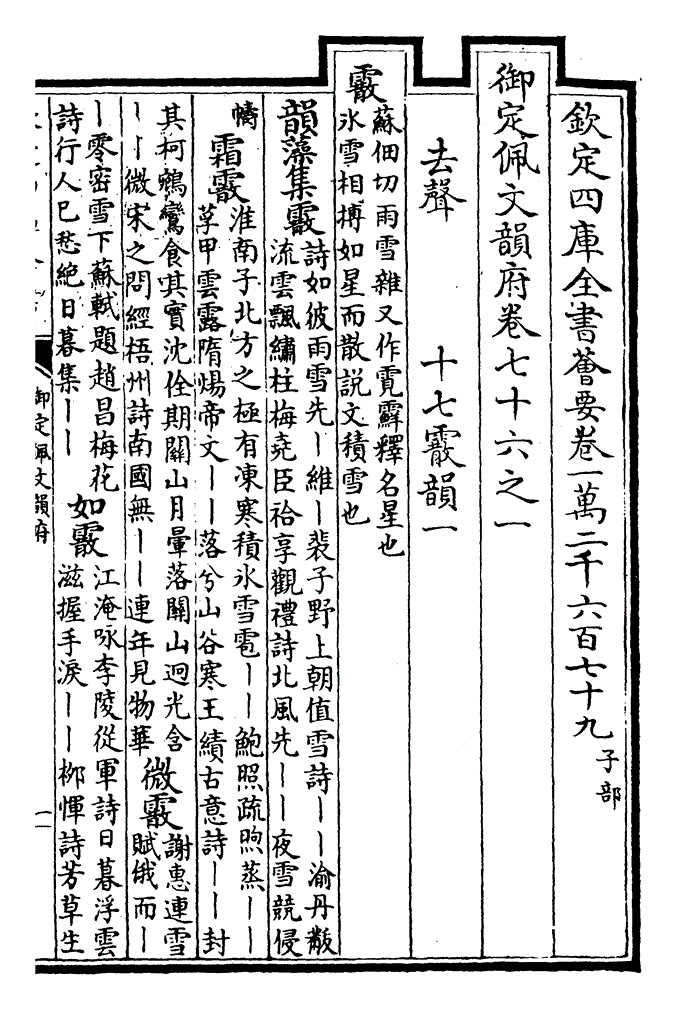 欽定四庫全書薈要卷一萬二千六百七十九 子部
御定佩文韻府卷七十六之一
去聲 十七霰韻一
霰
蘇佃切雨雪雜又作霓霹釋名星也
氷雪相搏如星而散説文積雪也
韻藻集霰
詩如彼雨雪先丨維丨裴子野上朝值雪詩丨丨渝丹黻
流雲飄繡柱梅堯臣祫享觀禮詩北風先丨丨夜雪競侵
幬
霜霰
淮南子北方之極有凍寒積氷雪雹丨丨鮑照疏煦蒸丨丨
草甲雲露隋煬帝文丨丨落兮山谷寒王績古意詩丨丨封
其柯鵷鸞食其實沈佺期關山月暈落關山迥光含
丨丨微宋之問經梧州詩南國無丨丨連年見物華
微霰
謝惠連雪
賦俄而丨
丨零密雪下蘇軾題趙昌梅花
詩行人已愁絶日暮集丨丨
如霰
江淹咏李陵從軍詩日暮浮雲
滋握手淚丨丨柳惲詩芳草生
御定佩文韻府
一